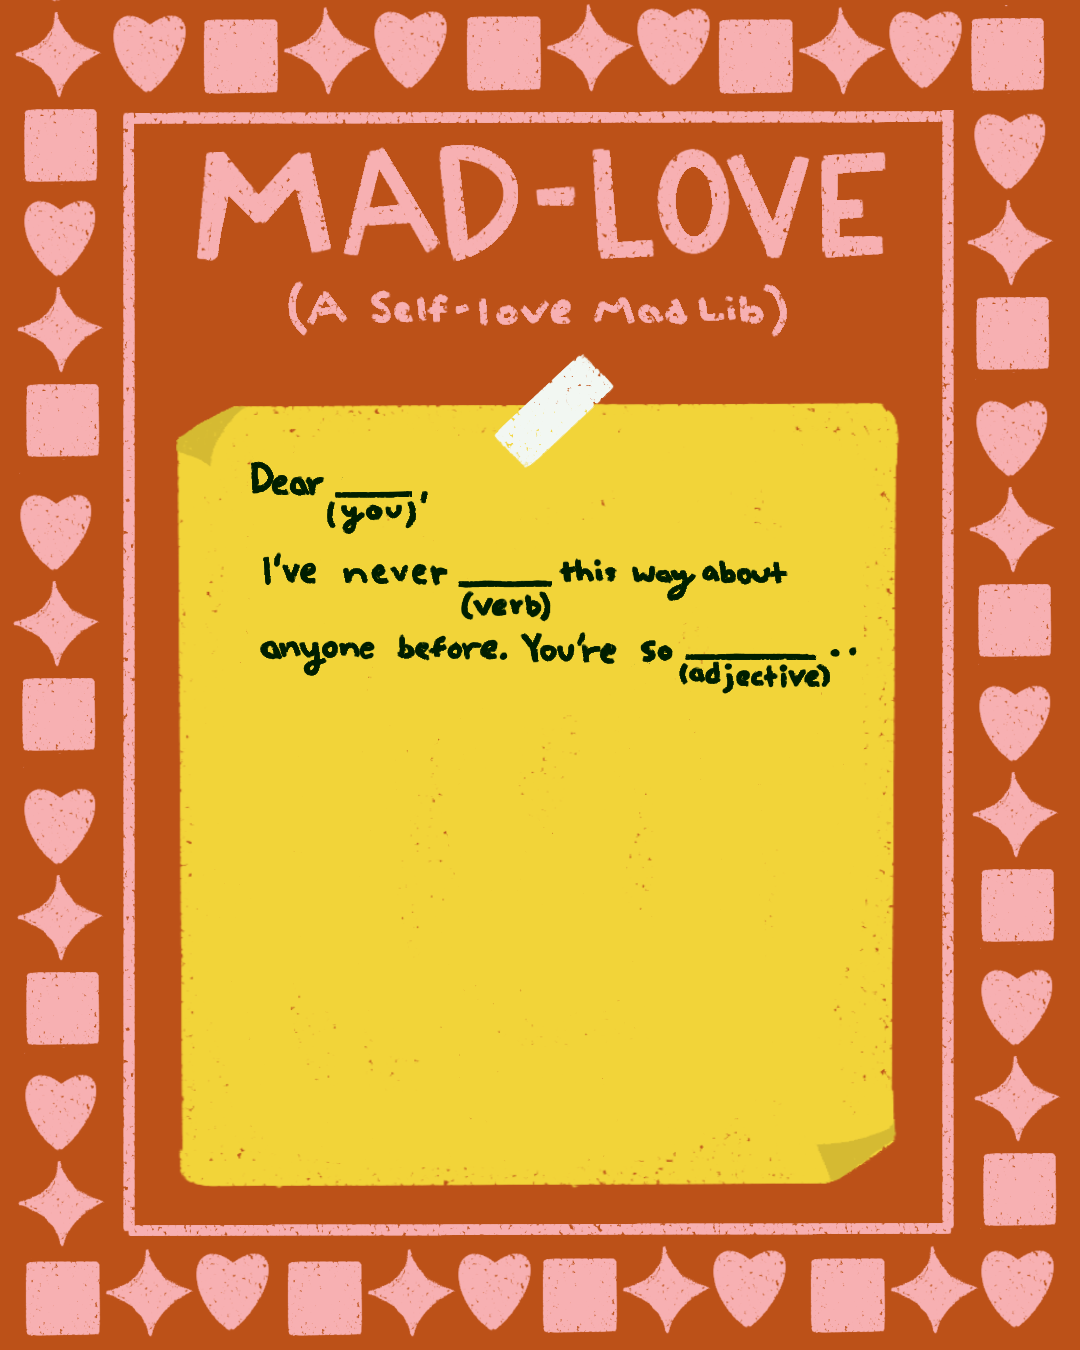 MAD-LOVE
(A Self-love Mad Lib)
Dear ______,
(you)
I've never ______ this way about
(verb)
anyone before. You're so ________ ..
(adjective)